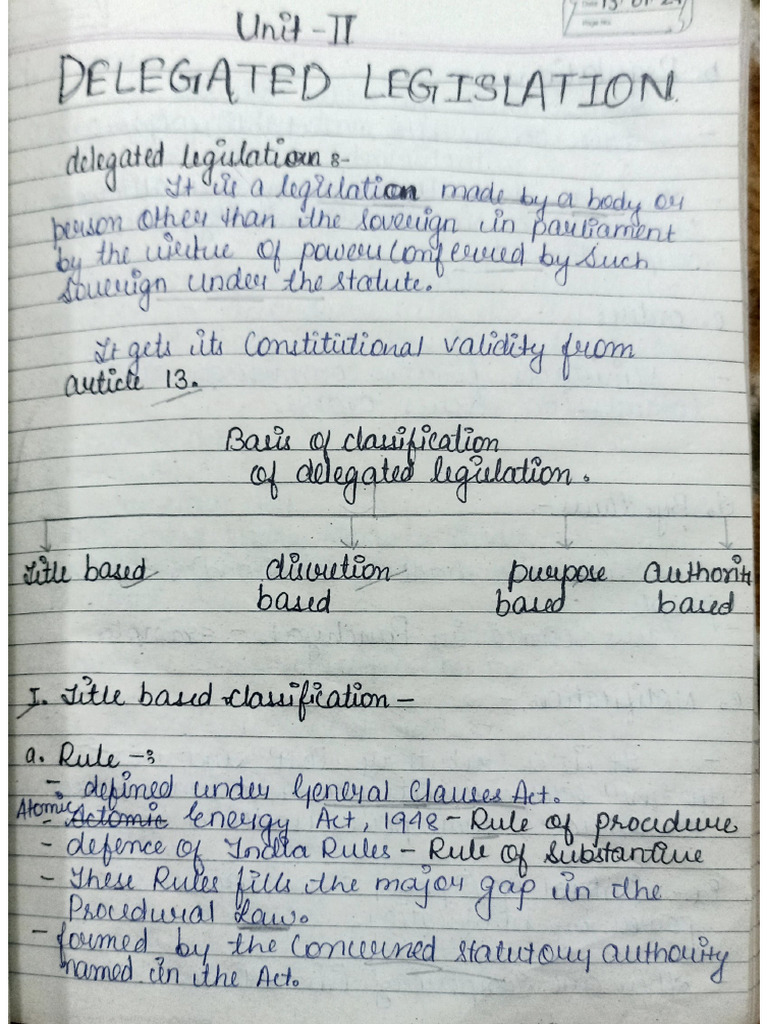 Unit - II
DELEGATED LEGISLATION.
delegated legislation :-
It is a legislation made by a body or
person other than the sovereign in parliament
by the virtue of powers conferred by such
sovereign under the statute.
It gets its Constitutional validity from
article 13.
Basis of classification
of delegated legislation.
Title based discretion purpose authority
based based based
I. Title based classification -
a. Rule -:
- defined under General Clauses Act.
- Actomic Atomic Energy Act, 1948 - Rule of procedure
- defence of India Rules - Rule of Substantive
- These Rules fills the major gap in the
Procedural Law.
- formed by the Concerned statutory authority
named in the Act.